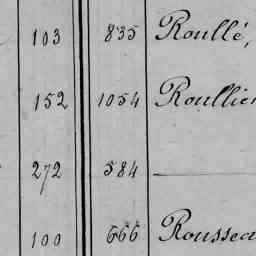 103 835 Roullé,
152 1054 Roullier
272 584 —
100 666 Roussea